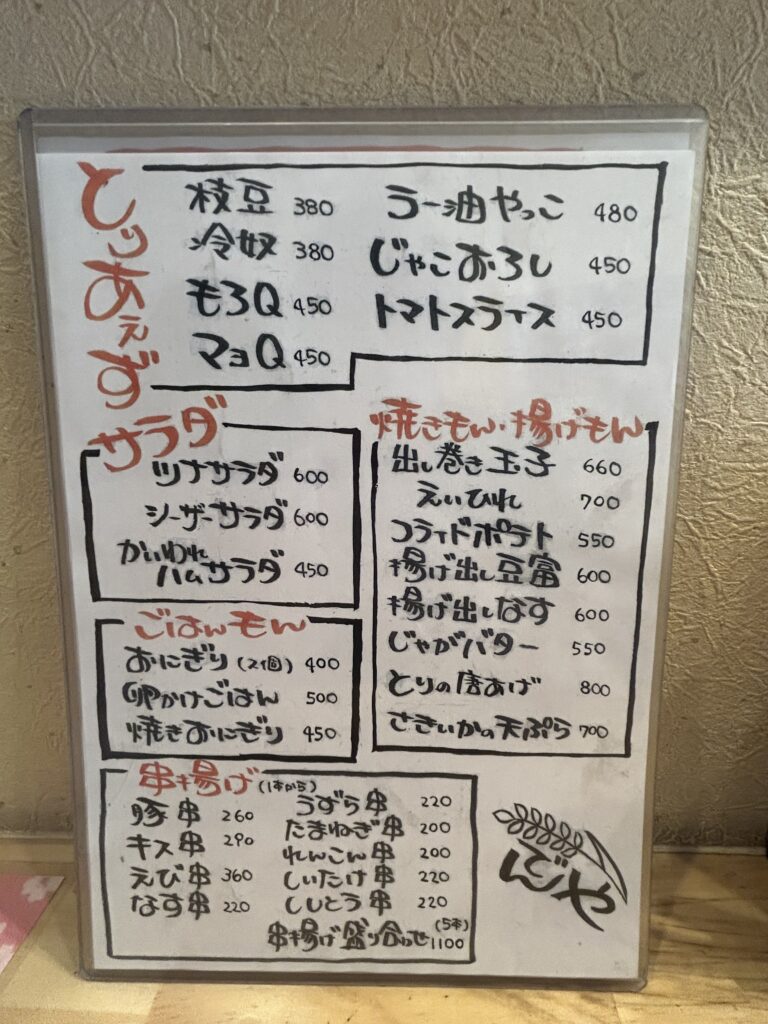 とりあえず
枝豆 380
冷奴 380
もろQ 450
マヨQ 450
ラー油やっこ 480
じゃこおろし 450
トマトスライス 450
サラダ
ツナサラダ 600
シーザーサラダ 600
かいわれ
ハムサラダ 450
ごはんもん
おにぎり(2個) 400
卵かけごはん 500
焼きおにぎり 450
焼きもん・揚げもん
出し巻き玉子 660
えいひれ 700
フライドポテト 550
揚げ出し豆富 600
揚げ出しなす 600
じゃがバター 550
とりの唐あげ 800
さきいかの天ぷら 700
串揚げ(1本から)
豚串 260
キス串 290
えび串 360
なす串 220
うずら串 220
たまねぎ串 200
れんこん串 200
しいたけ串 220
ししとう串 220
串揚げ盛り合わせ(5本) 1100